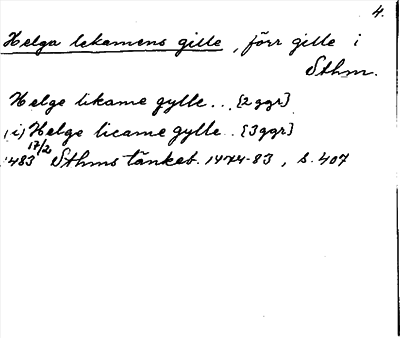 4.
Helga lekamens gille, förr gille i
Sthm.
Helge likame gylle... [2 ggr]
(i) Helge licame gylle.. [3 ggr]
17/2
1483 Sthms tänkeb. 1474-83, s. 407